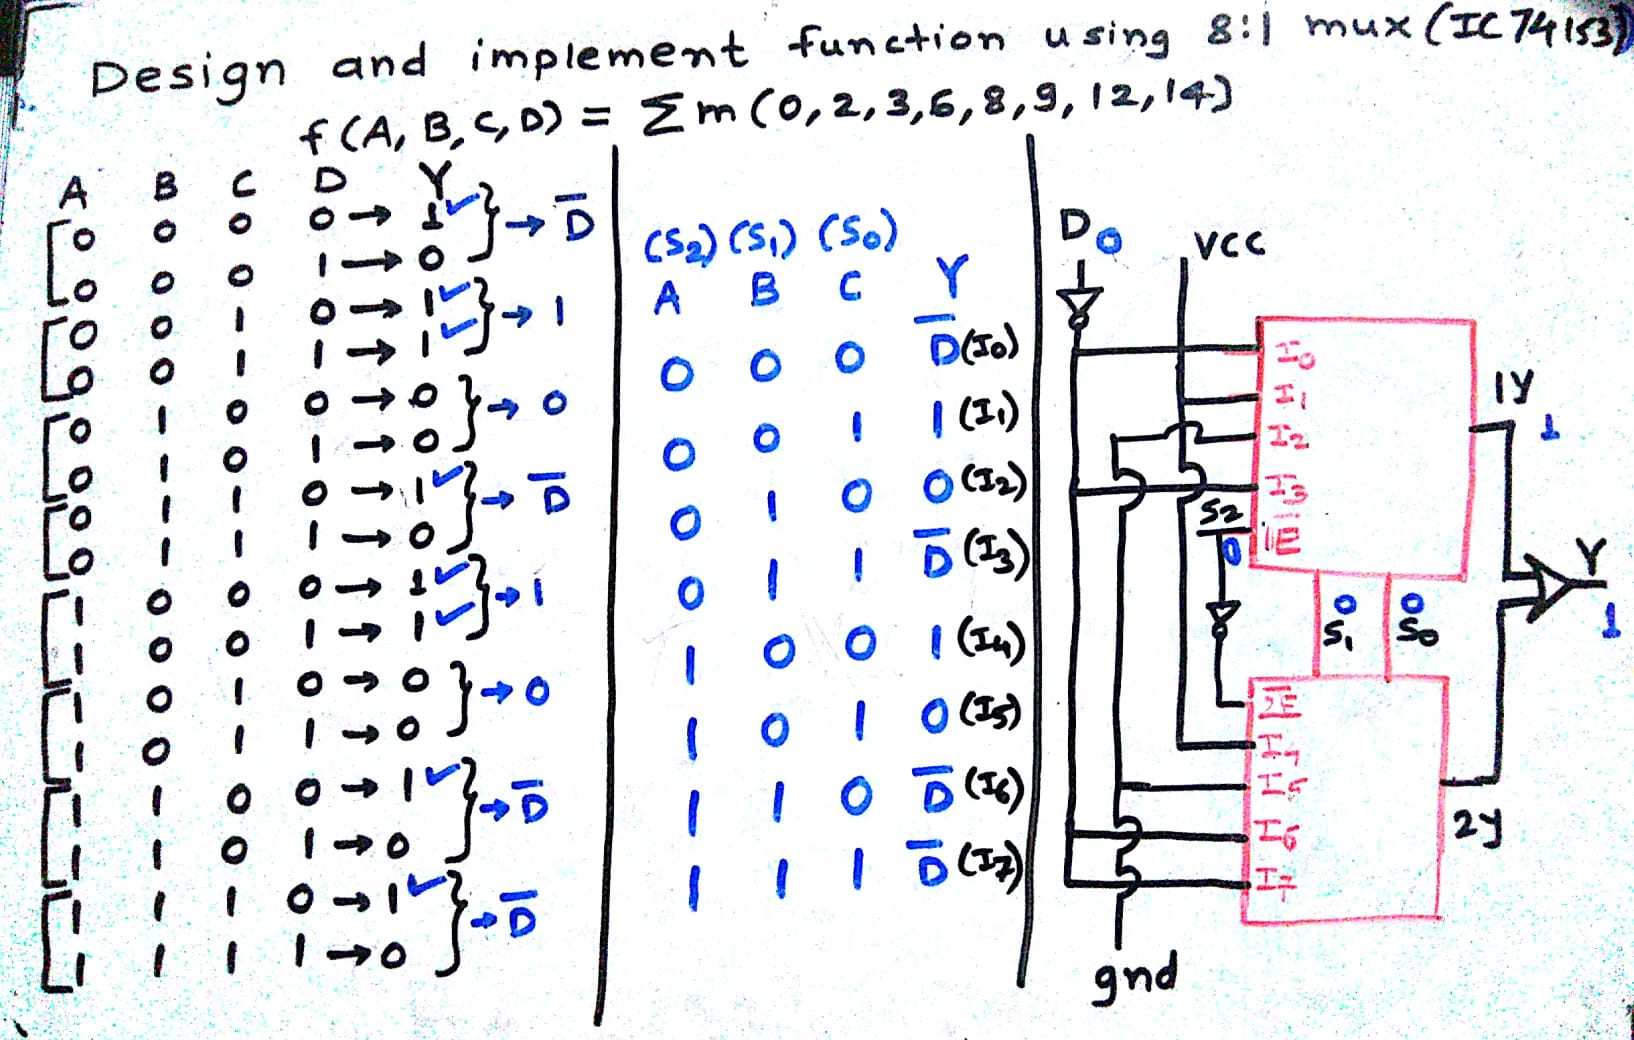 Design and implement function using 8:1 mux (IC 74153)
f(A, B, C, D) = Σm(0,2,3,6,8,9,12,14)
A B C D Y
0 0 0 0 → 1 ✓
0 0 0 1 → 0
} → D̅
0 0 1 0 → 1 ✓
0 0 1 1 → 1 ✓
} → 1
0 1 0 0 → 0
0 1 0 1 → 0
} → 0
0 1 1 0 → 1 ✓
0 1 1 1 → 0
} → D̅
1 0 0 0 → 1 ✓
1 0 0 1 → 1 ✓
} → 1
1 0 1 0 → 0
1 0 1 1 → 0
} → 0
1 1 0 0 → 1 ✓
1 1 0 1 → 0
} → D̅
1 1 1 0 → 1 ✓
1 1 1 1 → 0
} → D̅
(S2) (S1) (S0)
A B C Y
0 0 0 D̅(I0)
0 0 1 1(I1)
0 1 0 0(I2)
0 1 1 D̅(I3)
1 0 0 1(I4)
1 0 1 0(I5)
1 1 0 D̅(I6)
1 1 1 D̅(I7)
D 0
VCC
I0
I1
I2
I3
S2
0
1E̅
1Y
1
0 0
S1 S0
Y
1
2E̅
I4
I5
I6
I7
2Y
gnd